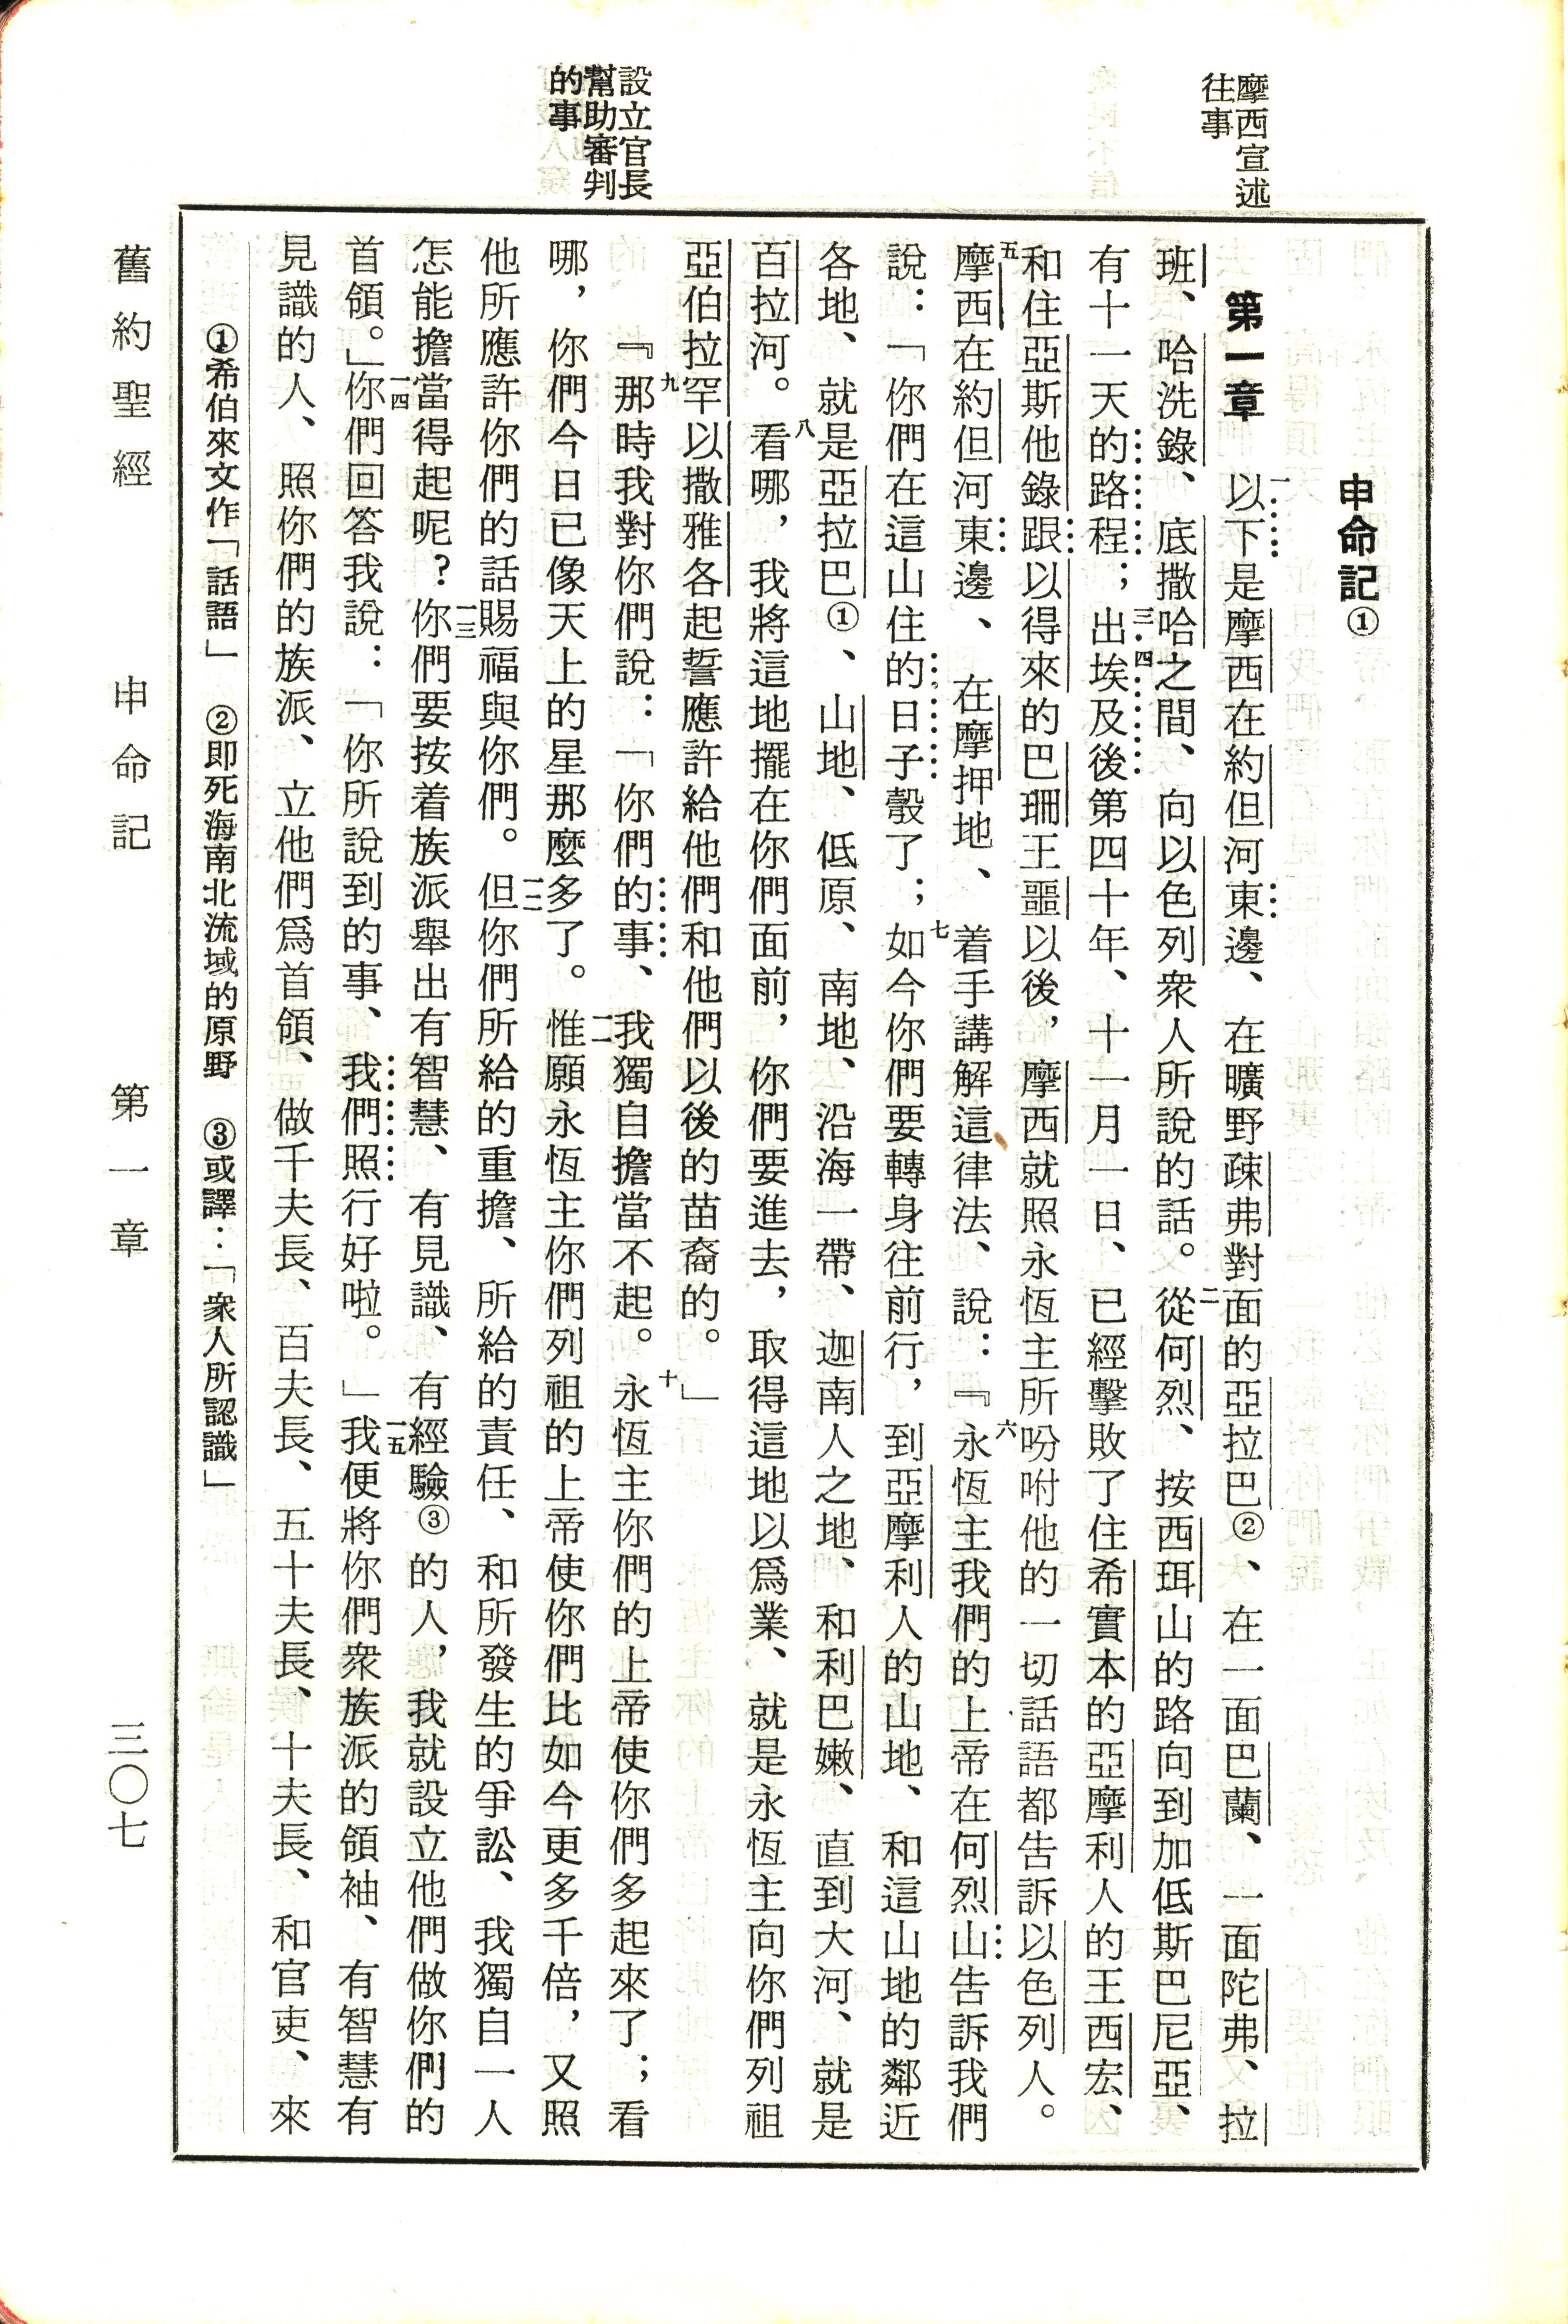 摩西宣述
往事
設立官長
幫助審判
的事
申命記①
第一章 一以下是摩西在約但河東邊、在曠野疎弗對面的亞拉巴②、在一面巴蘭、一面陀弗、拉
班、哈洗錄、底撒哈之間、向以色列衆人所說的話。二從何烈、按西珥山的路向到加低斯巴尼亞、
有十一天的路程；三.四出埃及後第四十年、十一月一日、已經擊敗了住希實本的亞摩利人的王西宏、
和住亞斯他錄跟以得來的巴珊王噩以後，摩西就照永恆主所吩咐他的一切話語都告訴以色列人。
五摩西在約但河東邊、在摩押地、着手講解這律法、說：『六永恆主我們的上帝在何烈山告訴我們
說：「你們在這山住的日子彀了；七如今你們要轉身往前行，到亞摩利人的山地、和這山地的鄰近
各地、就是亞拉巴①、山地、低原、南地、沿海一帶、迦南人之地、和利巴嫩、直到大河、就是
百拉河。八看哪，我將這地擺在你們面前，你們要進去，取得這地以爲業、就是永恆主向你們列祖
亞伯拉罕以撒雅各起誓應許給他們和他們以後的苗裔的。」
『九那時我對你們說：「你們的事、我獨自擔當不起。十永恆主你們的上帝使你們多起來了；看
哪，你們今日已像天上的星那麼多了。一一惟願永恆主你們列祖的上帝使你們比如今更多千倍，又照
他所應許你們的話賜福與你們。一二但你們所給的重擔、所給的責任、和所發生的爭訟、我獨自一人
怎能擔當得起呢？一三你們要按着族派舉出有智慧、有見識、有經驗③的人，我就設立他們做你們的
首領。」一四你們回答我說：「你所說到的事、我們照行好啦。」一五我便將你們衆族派的領袖、有智慧有
見識的人、照你們的族派、立他們爲首領、做千夫長、百夫長、五十夫長、十夫長、和官吏、來
①希伯來文作「話語」 ②即死海南北流域的原野 ③或譯：「衆人所認識」
舊約聖經 申命記 第一章 三〇七